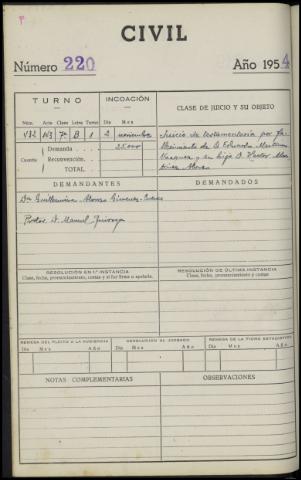 CIVIL
Número 220 Año 1954
TURNO INCOACIÓN CLASE DE JUICIO Y SU OBJETO
Núm. Acta Clase Letra Turno Día Mes
432 143 7ª B 1 2 noviembre
Cuantía Demanda 25.000
Reconvención
TOTAL
Juicio de testamentaría por fa-
llecimiento de D. Eduardo
y su hijo D.
DEMANDANTES DEMANDADOS
Dª Guillermina Alonso
Procdor D. Manuel
RESOLUCIÓN EN 1ª INSTANCIA
Clase, fecha, pronunciamiento, costas y si fué firme o apelada.
RESOLUCIÓN DE ÚLTIMA INSTANCIA
Clase, fecha, pronunciamiento y costas
REMESA DEL PLEITO A LA AUDIENCIA DEVOLUCIÓN AL JUZGADO REMESA DE LA FICHA ESTADÍSTICA
Día Mes Año Día Mes Año Día Mes Año
NOTAS COMPLEMENTARIAS OBSERVACIONES